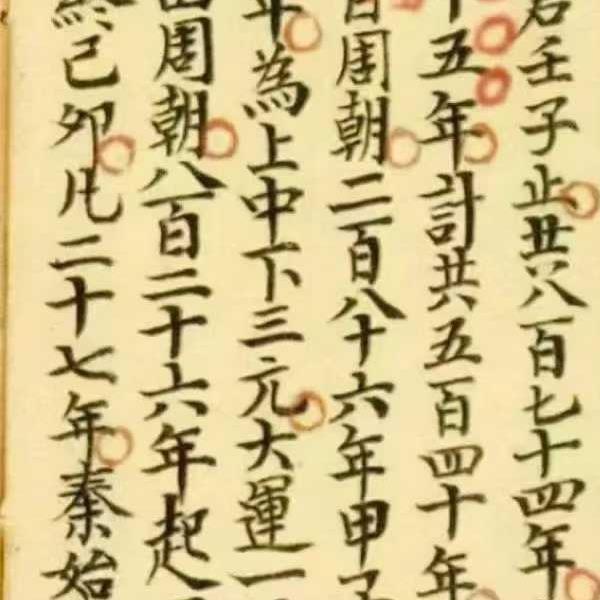 君壬子止共八百七十四年
十五年計共五百四十年
百周朝二百八十六年甲子
年為上中下三元大運一
周朝八百二十六年起
終己卯凡二十七年秦始